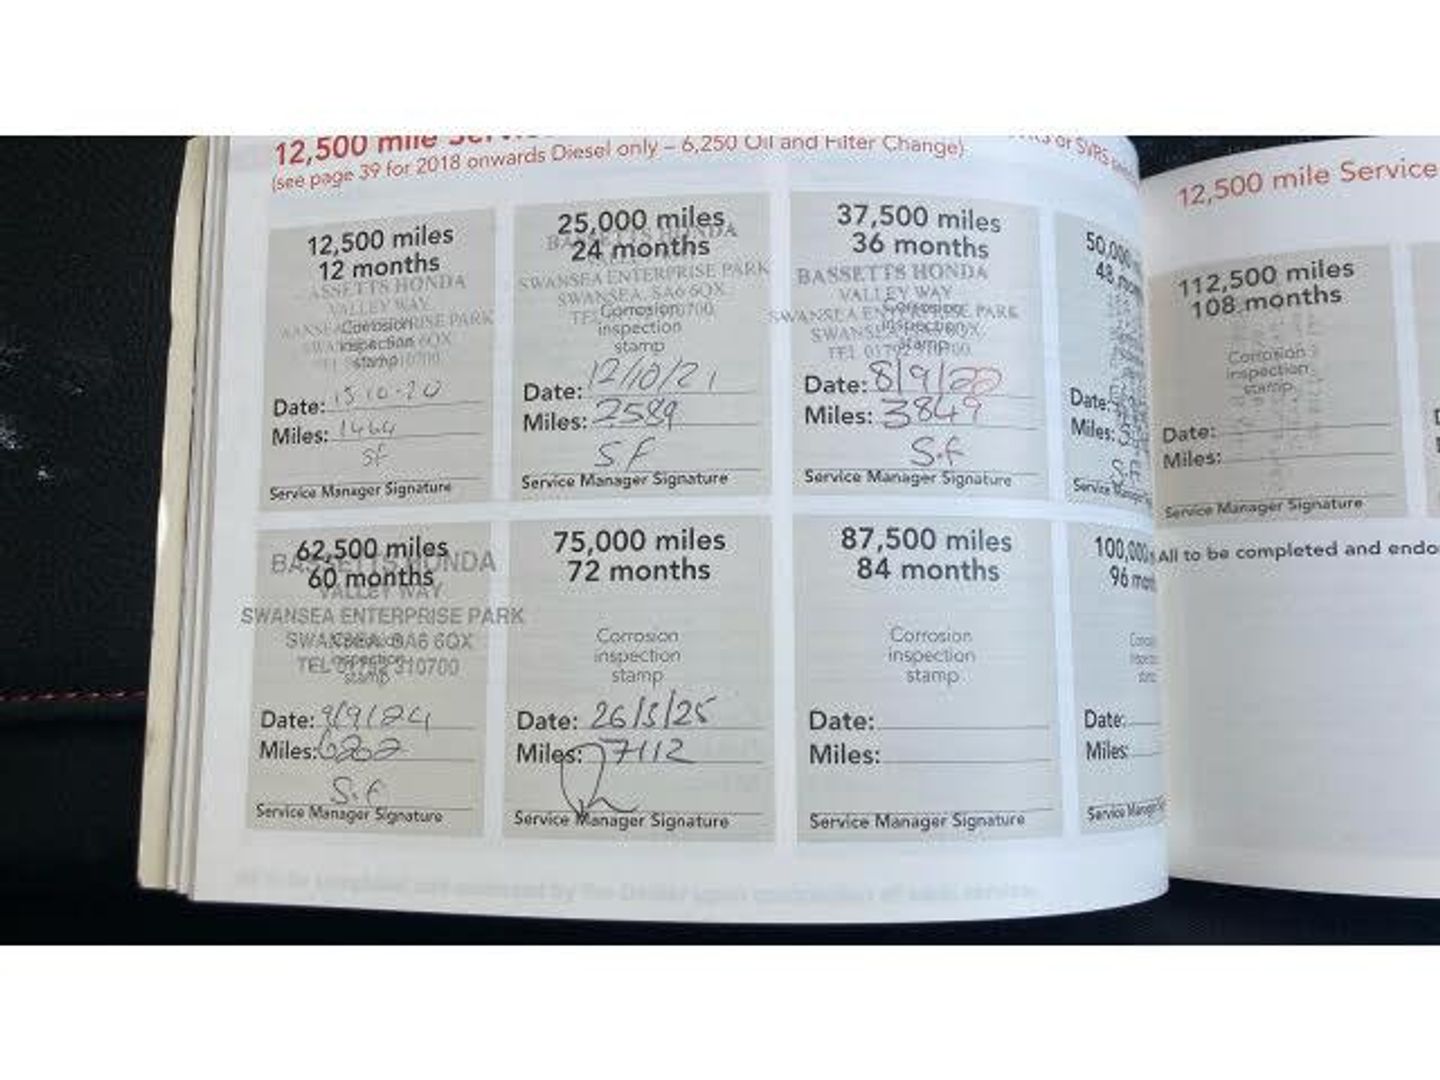 12,500 mile Service
(see page 39 for 2018 onwards Diesel only – 6,250 Oil and Filter Change)
or SVRS
12,500 miles
12 months
ASSETTS HONDA
VALLEY WAY
Corrosion
inspection
stamp
Date: 15 10-20
Miles: 1444
SF
Service Manager Signature
25,000 miles
24 months
HONDA
SWANSEA ENTERPRISE PARK
SWANSEA, SA6 6QX
Corrosion
inspection
stamp
Date: 12/10/21
Miles: 2589
S.F
Service Manager Signature
37,500 miles
36 months
BASSETTS HONDA
VALLEY WAY
SWANSEA ENTERPRISE PARK
Corrosion
inspection
stamp
Date: 8/9/22
Miles: 3849
S.F
Service Manager Signature
50,000
48
Date:
Miles:
S.F
Service
62,500 miles
60 months
BASSETTS HONDA
VALLEY WAY
SWANSEA ENTERPRISE PARK
SWANSEA SA6 6QX
TEL 01792 310700
Date: 9/9/24
Miles: 6202
S.F
Service Manager Signature
75,000 miles
72 months
Corrosion
inspection
stamp
Date: 26/3/25
Miles: 7112
Service Manager Signature
87,500 miles
84 months
Corrosion
inspection
stamp
Date:
Miles:
Service Manager Signature
100,000
96
Date:
Miles:
Service
12,500 mile Service
112,500 miles
108 months
Corrosion
inspection
stamp
Date:
Miles:
Service Manager Signature
All to be completed and endo